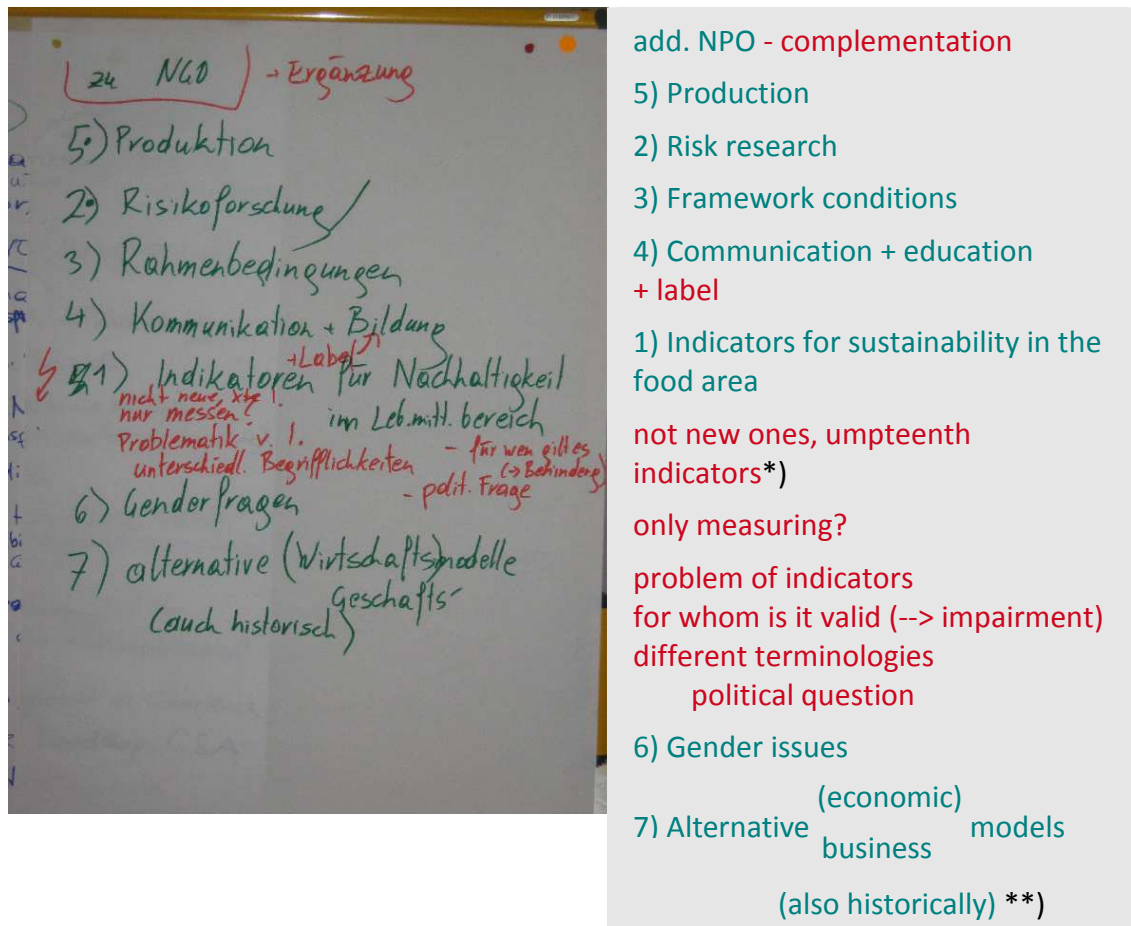 zu NGO → Ergänzung
5.) Produktion
2) Risikoforschung
3) Rahmenbedingungen
4) Kommunikation + Bildung
+Label
1) Indikatoren für Nachhaltigkeit
nicht neue, xte I.
nur messen?
im Leb.mitt.bereich
Problematik v. I.
- für wen gilt es
unterschiedl. Begrifflichkeiten
(→Behinderg)
- polit. Frage
6) Genderfragen
7) alternative (Wirtschafts)modelle
Geschäfts-
(auch historisch)
add. NPO - complementation
5) Production
2) Risk research
3) Framework conditions
4) Communication + education
+ label
1) Indicators for sustainability in the
food area
not new ones, umpteenth
indicators*)
only measuring?
problem of indicators
for whom is it valid (--> impairment)
different terminologies
political question
6) Gender issues
(economic)
7) Alternative models
business
(also historically) **)